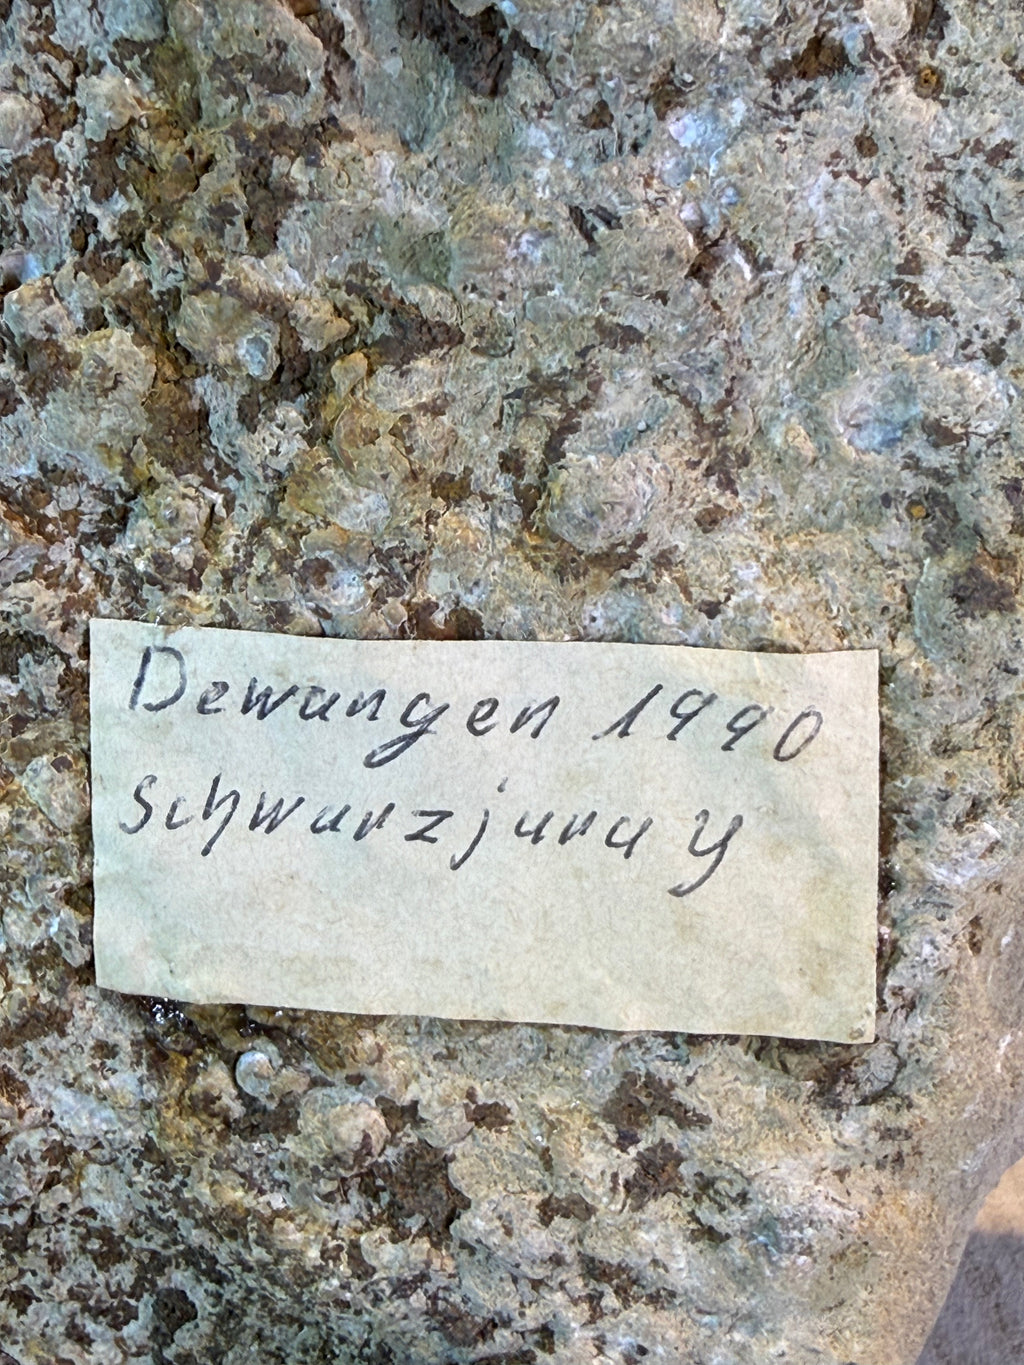 Dewangen 1990
Schwarzjura γ